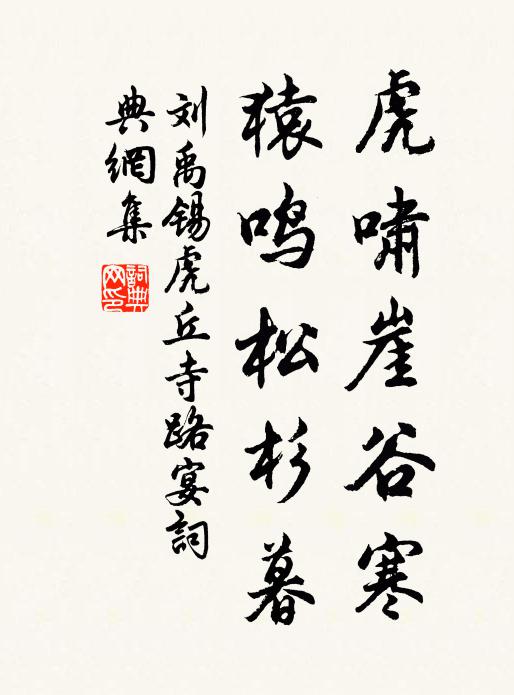 虎啸崖谷寒
猿鸣松杉暮
刘禹锡虎丘寺路宴詞
典網集
詞典
网印